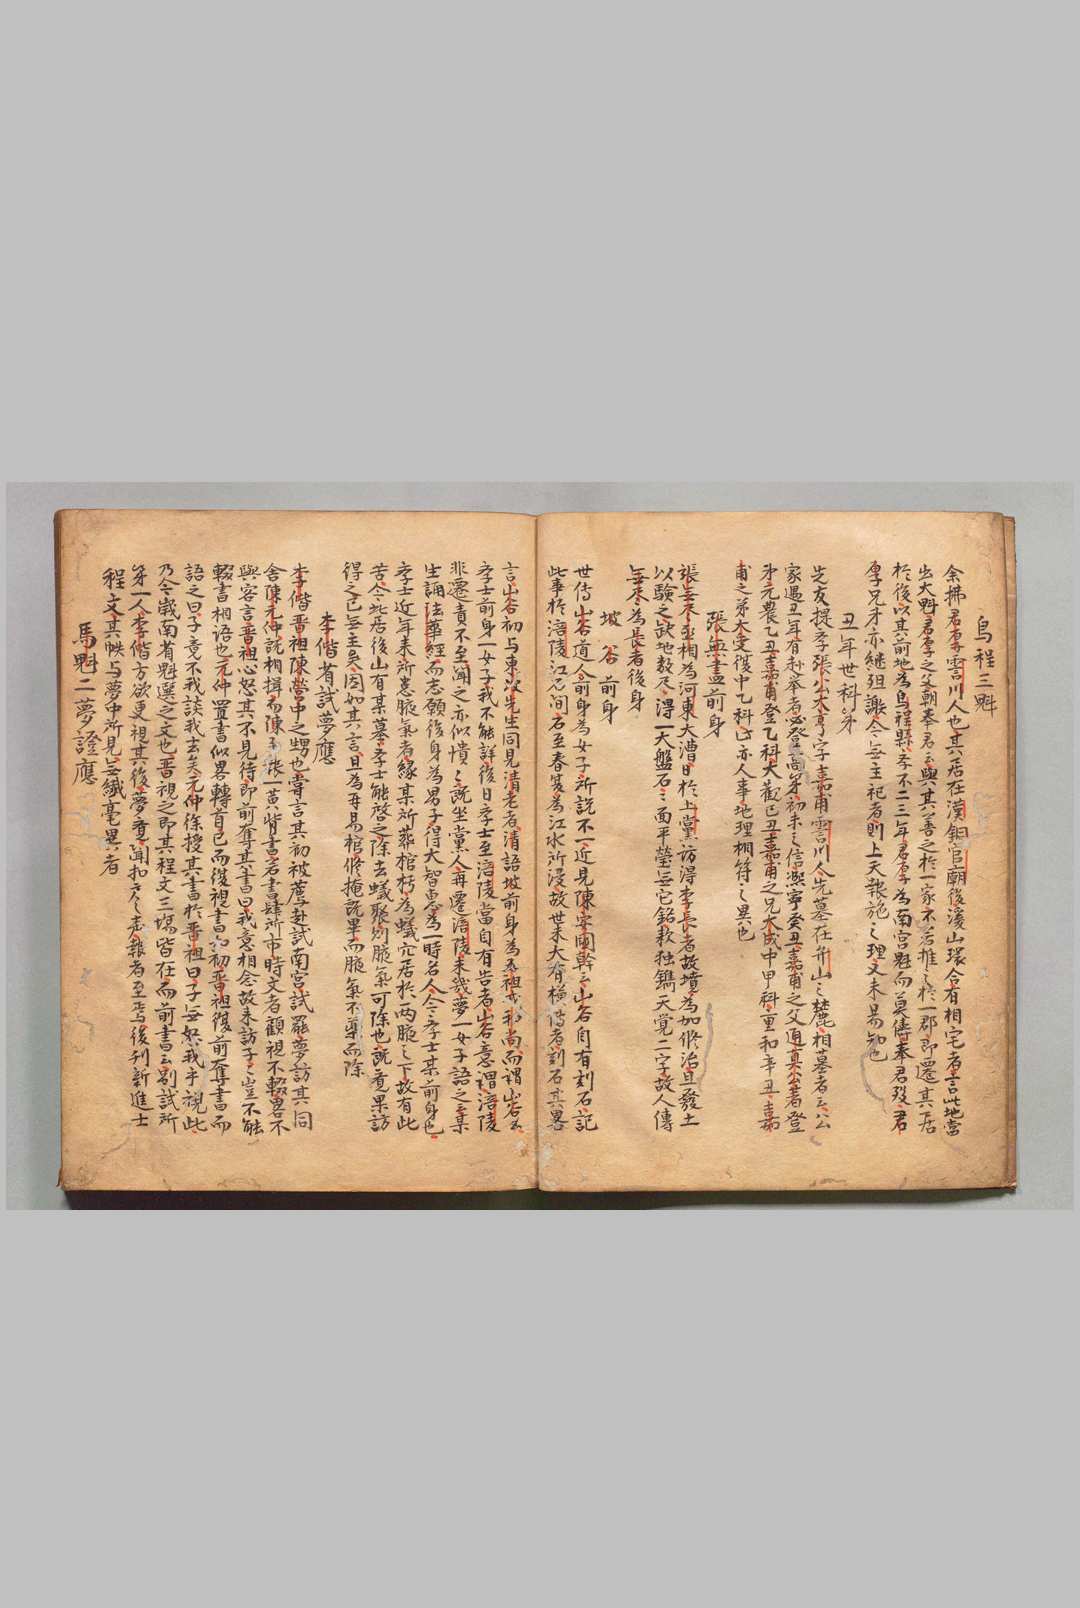 烏程三魁
余拂君厚霅川人也其居在漢銅官廟後溪山環合有相宅者言此地當
出大魁君厚之父朝奉君云與其善之於一家不若推之於一郡即遷其居
於後以其前地為烏程縣孝不二三年君厚為南宮魁而莫儔奉君歿君
厚兄弟亦繼殂謝今無主祀者則上天報施之理又未易知也
丑年世科第
先友提孝張公大亨字嘉甫霅川人先墓在弁山之麓相墓者云公
家遇丑年有赴举者必登高第初未之信熙寧癸丑嘉甫之父通直公著登
第元農乙丑嘉甫登乙科大觀己丑嘉甫之兄大成中甲科重和辛丑嘉
甫之弟大受復中乙科此亦人事地理相符之異也
張無盡前身
張無尽丞相為河東大漕日於上黨訪得李長者故墳為加修治且發土
以驗之掘地数尺得一大盤石石面平瑩無它銘款独鐫天覚二字故人傳
無尽為長者後身
坡谷前身
世传山谷道人前身為女子所説不一近見陳安国幹云山谷自有刻石記
此事於涪陵江石間石至春夏為江水所浸故世未大有模傳者刻石其畧
言山谷初与東坡先生同見清老者清語坡前身為五祖戒和尚而謂山谷云
孝士前身一女子我不能詳後日孝士至涪陵當自有告者山谷意謂涪陵
非遷責不至聞之亦似憒憒既坐黨人再遷涪陵未幾夢一女子語之云某
生誦法華經而志願後身為男子得大智恵為一時名人今孝士某前身也
孝士近年来所患腋氣者緣某所葬棺朽為蟻穴居於両腋之下故有此
苦今此居後山有某墓孝士能啓之除去蟻聚則腋氣可除也既覚果訪
得之已無主矣因如其言且為再易棺修掩既畢而腋氣不薬而除
李偕省試夢應
李偕晋祖陳瑩中之甥也嘗言其初被薦赴試南宮試罷夢訪其同
舍陳元仲既相揖而陳手執一黄背書若書肆所市時文者顧視不輟畧不
與客言晋祖心怒其不見待即前奪其書曰我意相念故来訪子豈不能
輟書相語也元仲置書似畧轉首已而復視書如初晋祖復前奪書而
語之曰子竟不我談我去矣元仲徐授其書於晋祖曰子無怒我乎視此
乃今歳南省魁選之文也晋祖視之即其程文三場皆在而前書云別試所
第一人李偕方欲更視其後夢覚聞扣戸之声報者至焉後刊新進士
程文其帙与夢中所見無纖毫異者
馬魁二夢證應